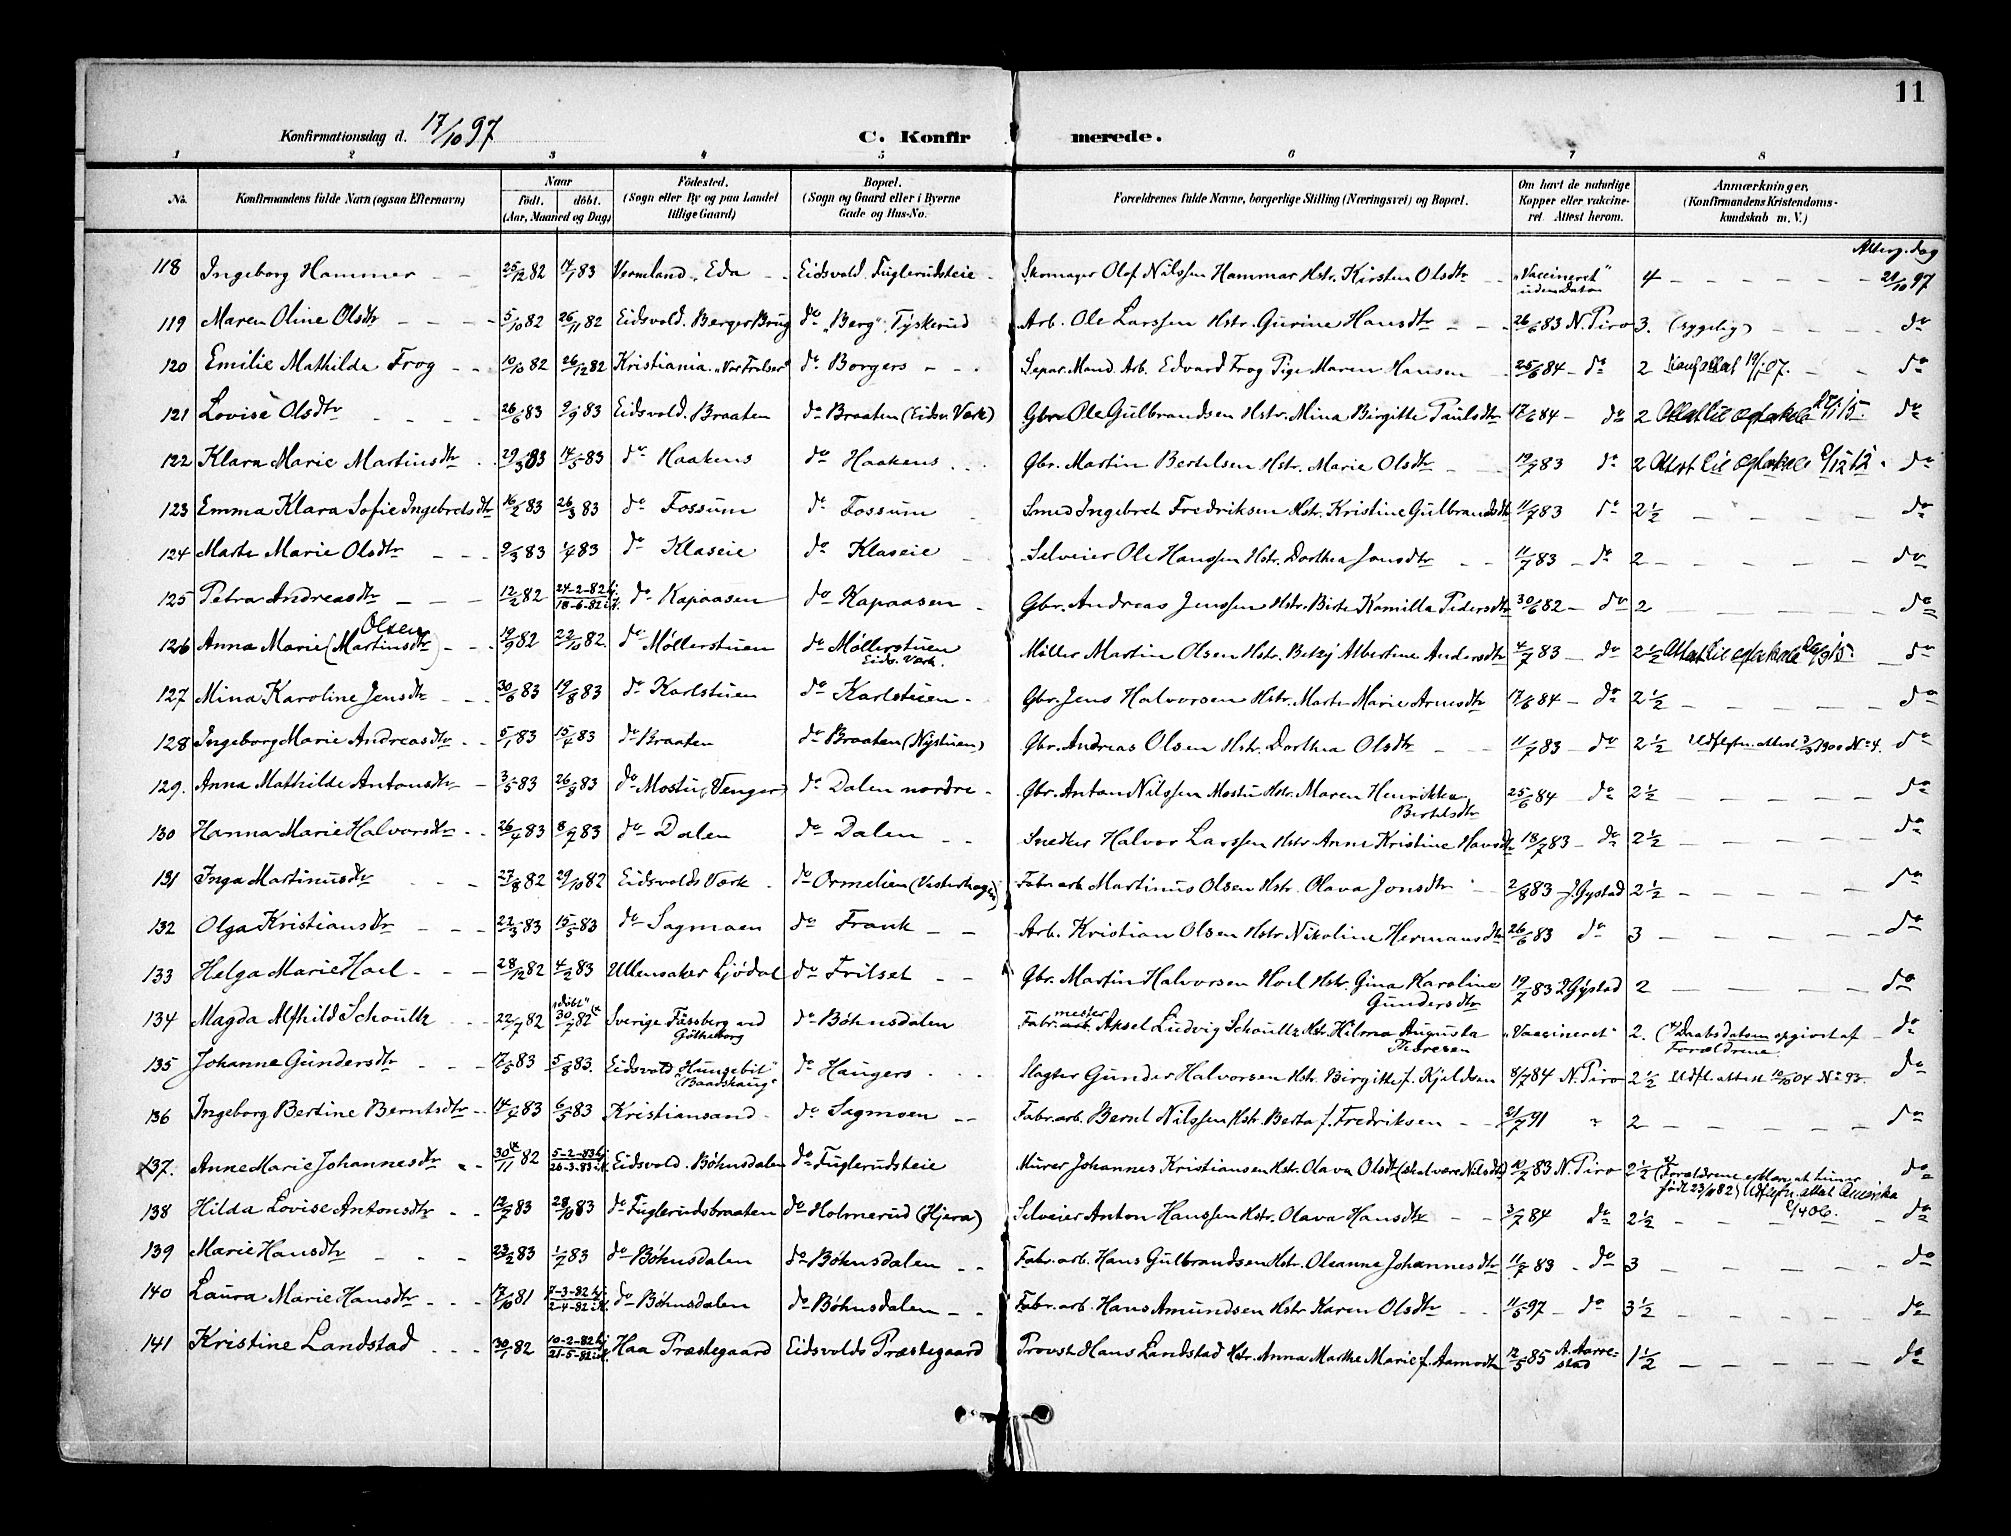 11
Konfirmationsdag d. 17/10 97
C. Konfirmerede.
1 2 3 4 5 6 7 8
No. Konfirmandens fulde Navn (ogsaa Efternavn) Naar Födt. döbt. (Aar, Maaned og Dag) Födested. (Sogn eller By og paa Landet tillige Gaard) Bopæl. (Sogn og Gaard eller i Byerne Gade og Hus-No. Forældrenes fulde Navne, borgerlige Stilling (Næringsvei) og Bopæl. Om havt de naturlige Kopper eller vaccineret. Attest herom. Anmærkninger. (Konfirmandens Kristendomskundskab m. V.)
Alterg. dag
118 Ingeborg Hammer 25/12 82 14/1 83 Vermland, Eda Eidsvold. Fuglerudsteie Skomager Olof Nilssen Hammar Hstr. Kirsten Olsdtr "Vaccineret" uden Datum 4 21/10 97
119 Maren Oline Olsdtr 5/10 82 26/11 82 Eidsvold. Berger Brug do "Berg", Tyskerud Arb. Ole Larssen Hstr. Gurine Hansdtr 26/6 83 N. Piro 3. (sygelig) do
120 Emilie Mathilde Frog 10/10 82 26/12 82 Kristiania. "Vor Frelser" do Borgers Separ. Mand. Arb. Edvard Frog Pige Maren Hansen 25/6 84 do 2 do
121 Lovise Olsdtr 26/6 83 9/9 83 Eidsvold. Braaten do Braaten (Eidsv. Værk) Gbr. Ole Gulbrandsen Hstr. Mina Birgitte Paulsdtr 17/6 84 do 2 do
122 Klara Marie Martinsdtr 29/3 83 14/5 83 do Haakens do Haakens Gbr. Martin Bertelsen Hstr. Marie Olsdtr 19/7 83 do 2 do
123 Emma Klara Sofie Ingebretsdtr 16/2 83 26/3 83 do Fossum do Fossum Smed Ingebret Fredriksen Hstr. Kristine Gulbrandsdtr 11/7 83 do 2 1/2 do
124 Marte Marie Olsdtr 9/3 83 1/7 83 do Klaseie do Klaseie Selveier Ole Hanssen Hstr. Dorthea Jonsdtr 11/7 83 do 2 do
125 Petra Andreasdtr 12/2 82 24-2-82 hj. 18-6-82 i K. do Kapaasen do Kapaasen Gbr. Andreas Jenssen Hstr. Birte Kamilla Pedersdtr 30/6 82 do 2 do
126 Anna Marie (Martinsdtr) Olsen 19/9 82 22/10 82. do Møllerstuen do Møllerstuen Eidsv. Værk. Møller Martin Olsen Hstr. Betzy Albertine Andersdtr 4/7 83 do 2 1/2 do
127 Mina Karoline Jensdtr 30/6 83 19/8 83 do Karlstuen do Karlstuen Gbr. Jens Halvorsen Hstr. Marte Marie Arnesdtr 17/6 84 do 2 1/2 do
128 Ingeborg Marie Andreasdtr 5/1 83 15/4 83 do Braaten do Braaten (Nystuen) Gbr. Andreas Olsen Hstr. Dorthea Olsdtr 11/7 83 do 2 1/2 do
129. Anna Mathilde Antonsdtr 3/5 83 26/8 83 do Mostu (Venger) do Dalen nordre Gbr. Anton Nilssen Mostu Hstr. Maren Henrikka Bertelsdtr 25/6 84 do 2 1/2 do
130 Hanna Marie Halvorsdtr 26/4 83 8/7 83 do Dalen do Dalen Snedker Halvor Larssen Hstr Anne Kristine Hansdtr 18/7 83 do 2 1/2 do
131 Inga Martinusdtr 27/8 82 29/10 82 Eidsvolds Værk do Ormelien (Vesterhagen) Fabr. arb. Martinus Olsen Hstr. Olava Jonsdtr 2/8 83 J. Gystad 2 1/2 do
132 Olga Kristiansdtr 22/3 83 15/5 83 do Sagmoen do Frank Arb. Kristian Olsen Hstr Nikoline Hermansdtr 26/6 83 do 3 do
133 Helga Marie Hoel 28/12 82 4/2 83 Ullensaker Ljødal do Frilset Gbr. Martin Halvorsen Hoel Hstr. Gina Karoline Gundersdtr 19/7 83 Gystad 2 do
134 Magda Alfhild Schoultz 22/7 82 "döbt" 30/7 82 Sverige Fässberg ved Götheborg do Böhnsdalen Fabr. mester Aksel Ludvig Schoultz Hstr. Hilma Augusta Theresen "Vaccineret" 2. (Daabsdatum opgivet af Forældrene do
135 Johanne Gundersdtr 17/5 83 5/8 83. Eidsvold "Hungebit" "Baadshaug" do Haugers Slagter Gunder Halvorsen Hstr. Birgitte f. Kjeldsen 8/7 84 N. Piro 2 1/2 Udfl. attest 10/10 04 No 93. do
136 Ingeborg Bertine Berntsdtr 14/2 83 6/5 83 Kristiansand do Sagmoen Fabr. arb. Bernt Nilssen Hstr. Berta f. Fredriksen 21/7 91 " 2 do
137. Anne Marie Johannesdtr 30/11 82 5-2-83 hj 26-3-83 i K. Eidsvold. Böhnsdalen do Fuglerudsteie Murer Johannes Kristiansen Hstr. Olava Olsdtr (skal være Nilsdtr) 10/7 83 N. Piro 2 1/2 (Forældrene at hun er født 23/11 82) Udflytn. attest Amerika do
138 Hilda Lovise Antonsdtr 12/7 83 28/10 83 do Fuglerudsbraaten do Holmerud (Hjera) Selveier Anton Hanssen Hstr. Olava Hansdtr 3/7 84 do 2 1/2 do
139 Marie Hansdtr 23/2 83 1/7 83 do Böhnsdalen do Böhnsdalen Fabr. arb. Hans Gulbrandsen Hstr. Oleanne Johannesdtr 11/7 83 do 3 do
140 Laura Marie Hansdtr 17/10 81 7-3-82 hj. 2-4-82 i K. do Böhnsdalen do Böhnsdalen Fabr. arb. Hans Amundsen Hstr Karen Olsdtr 11/5 97 do 3 1/2 do
141 Kristine Landstad 30/1 82 10-2-82 hj. 21-5-82 i K. Haa Præstegaard Eidsvolds Præstegaard Provst Hans Landstad Hstr. Anna Marthe Marie f. Aamodt 12/5 85 A. Aarrestad 1 1/2 do